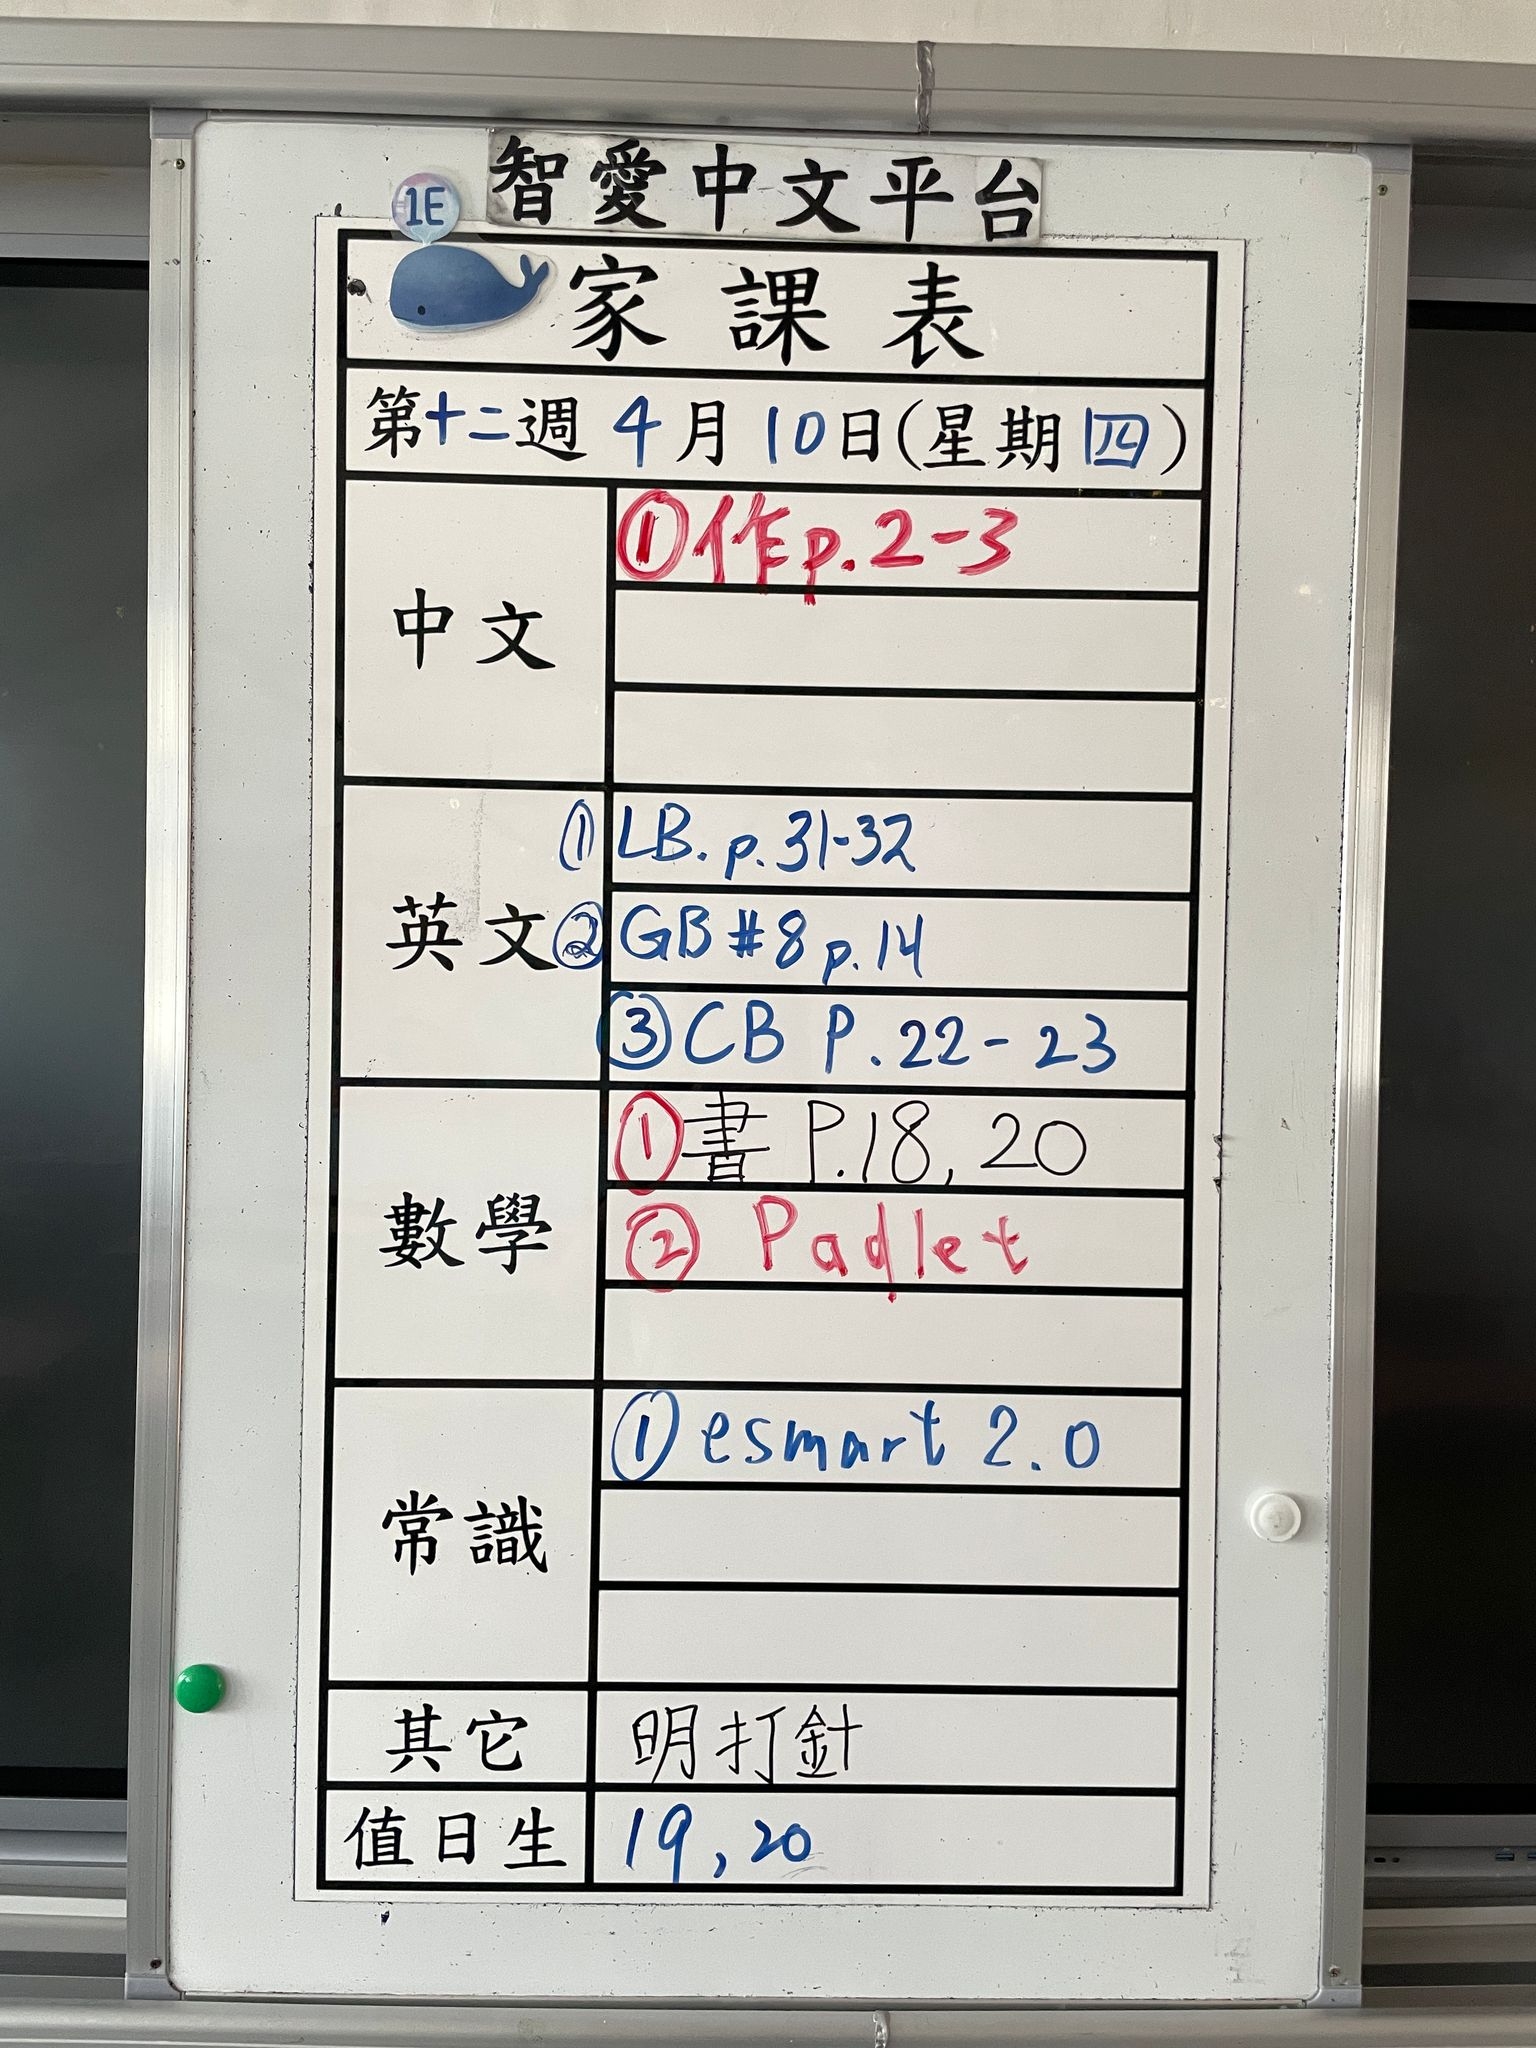 智愛中文平台
1E
家課表
第十二週 4月10日(星期四)
中文
①作p.2-3
英文
① LB. p. 31-32
② GB #8 p.14
③ CB P. 22-23
數學
①書 P.18, 20
② Padlet
常識
① esmart 2.0
其它 明打針
值日生 19, 20